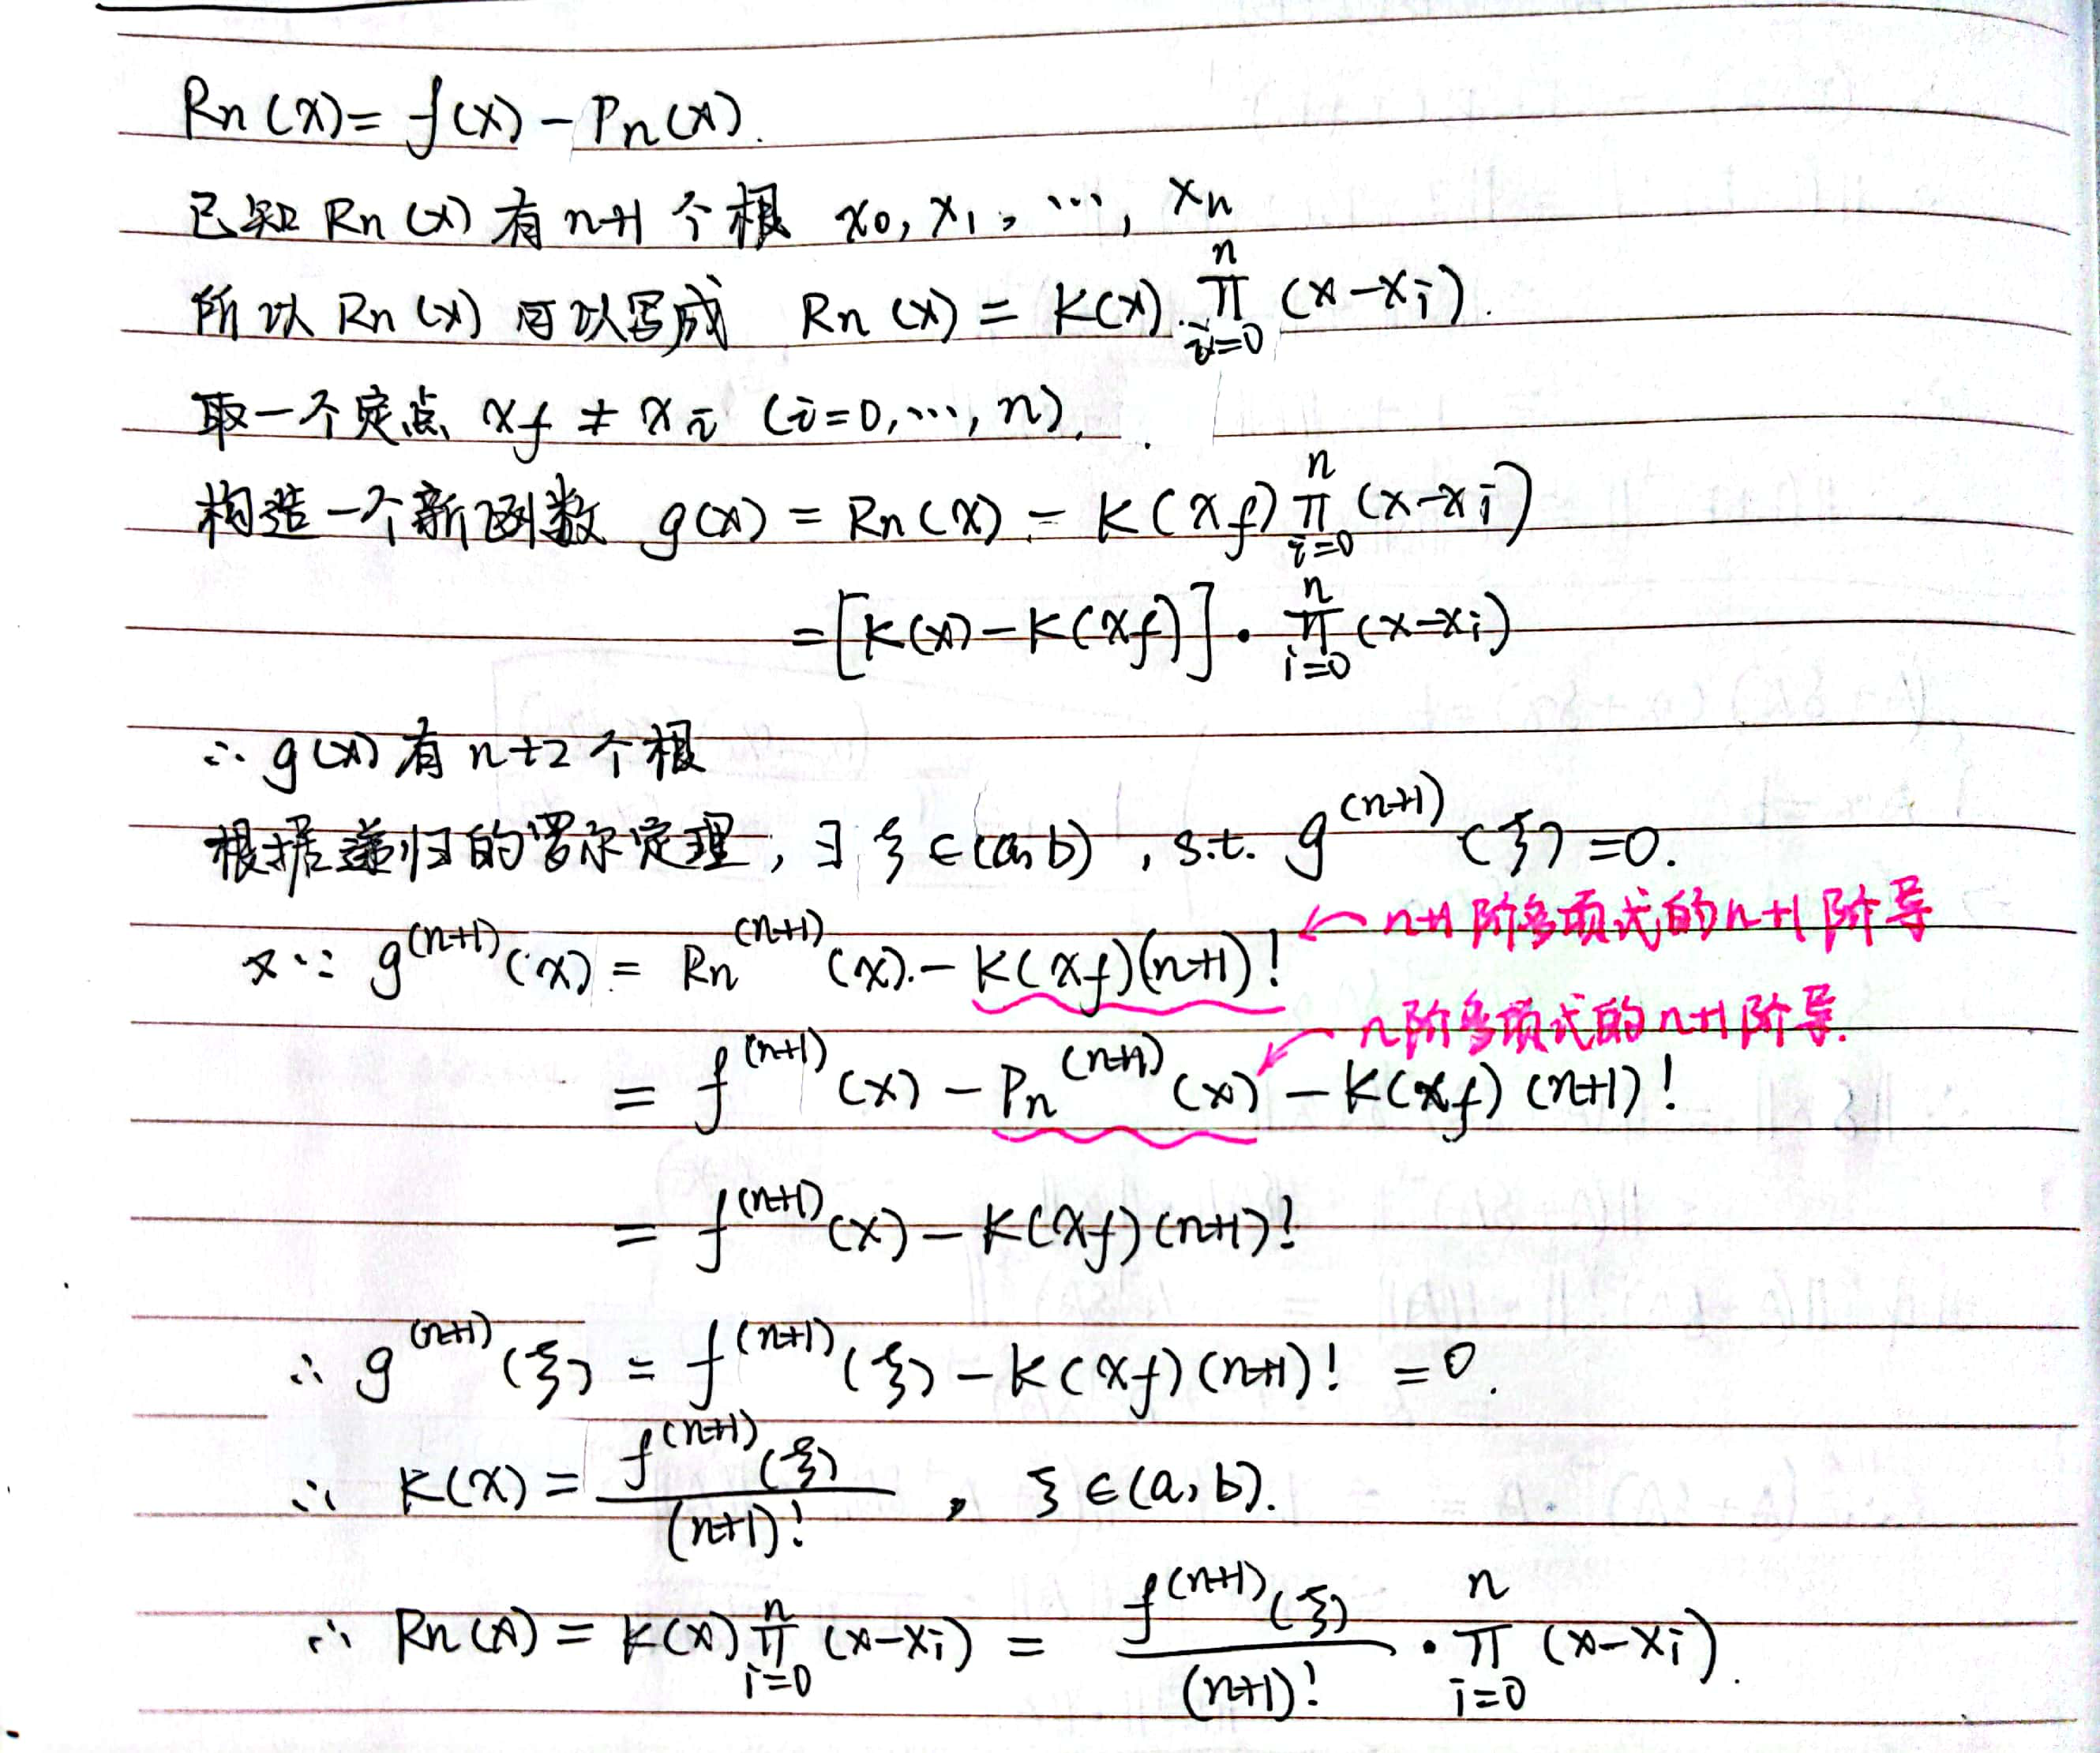 Rn(x) = f(x) - Pn(x).
已知 Rn(x) 有 n+1 个根 x₀, x₁, ⋯, xₙ
所以 Rn(x) 可以写成 Rn(x) = K(x) ∏_{i=0}^{n} (x-xᵢ).
取一个定点 x_f ≠ xᵢ (i=0,⋯,n).
构造一个新函数 g(x) = Rn(x) - K(x_f) ∏_{i=0}^{n} (x-xᵢ)
= [K(x) - K(x_f)] · ∏_{i=0}^{n} (x-xᵢ)
∴ g(x) 有 n+2 个根
根据递归的罗尔定理, ∃ ξ ∈ (a,b), s.t. g^{(n+1)}(ξ) = 0.
又∵ g^{(n+1)}(x) = Rn^{(n+1)}(x) - K(x_f)(n+1)! ← n+1阶多项式的n+1阶导
= f^{(n+1)}(x) - Pn^{(n+1)}(x) - K(x_f)(n+1)! ← n阶多项式的n+1阶导.
= f^{(n+1)}(x) - K(x_f)(n+1)!
∴ g^{(n+1)}(ξ) = f^{(n+1)}(ξ) - K(x_f)(n+1)! = 0.
∴ K(x) = \frac{f^{(n+1)}(ξ)}{(n+1)!}, ξ ∈ (a,b).
∴ Rn(x) = K(x) ∏_{i=0}^{n} (x-xᵢ) = \frac{f^{(n+1)}(ξ)}{(n+1)!} · ∏_{i=0}^{n} (x-xᵢ).